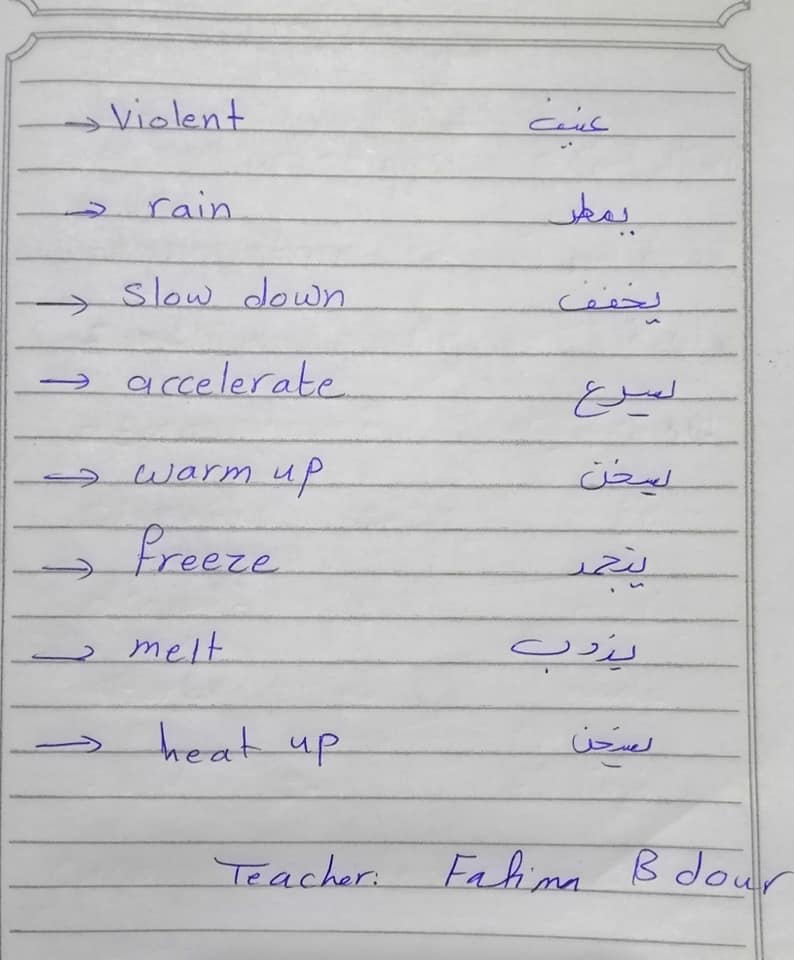 → Violent عنيف
→ rain يمطر
→ Slow down يخفف
→ accelerate يسرع
→ warm up يسخن
→ freeze يتجمد
→ melt يذوب
→ heat up يسخن
Teacher: Fatima Bdour